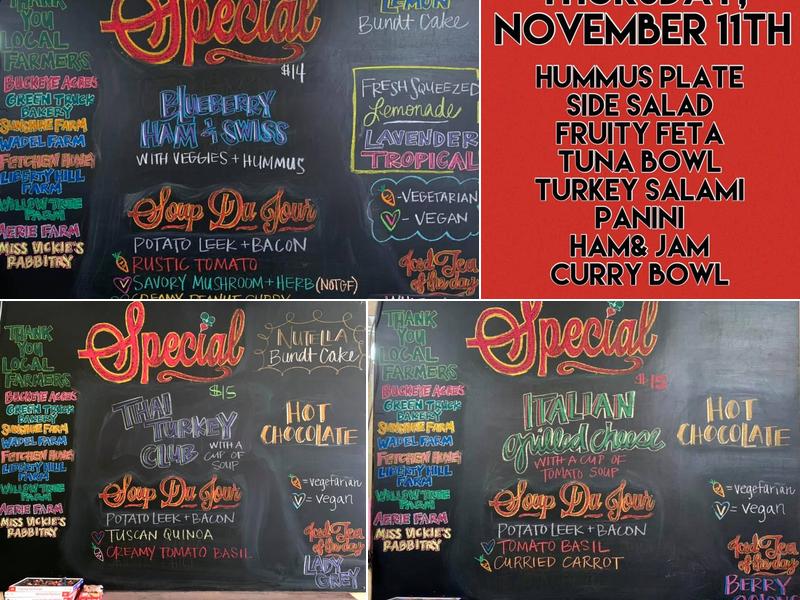 THANK
YOU
LOCAL
FARMERS
BUCKEYE ACRES
GREEN TRUCK
BAKERY
SUNSHINE FARM
WADEL FARM
FETCHEN HONEY
LIBERTY HILL
FARM
WILLOW TREE
FARM
AERIE FARM
MISS VICKIE'S
RABBITRY
Special
$14
BLUEBERRY
HAM & SWISS
WITH VEGGIES + HUMMUS
Soup Da Jour
POTATO LEEK + BACON
RUSTIC TOMATO
SAVORY MUSHROOM + HERB (NOT GF)
CREAMY PEANUT CURRY
LEMON
Bundt Cake
FRESH SQUEEZED
Lemonade
LAVENDER
TROPICAL
-VEGETARIAN
- VEGAN
Iced Tea
of the day
THURSDAY,
NOVEMBER 11TH
HUMMUS PLATE
SIDE SALAD
FRUITY FETA
TUNA BOWL
TURKEY SALAMI
PANINI
HAM& JAM
CURRY BOWL
THANK
YOU
LOCAL
FARMERS
BUCKEYE ACRES
GREEN TRUCK
BAKERY
SUNSHINE FARM
WADEL FARM
FETCHEN HONEY
LIBERTY HILL
FARM
WILLOW TREE
FARM
AERIE FARM
MISS VICKIE'S
RABBITRY
Special
$15
THAI
TURKEY
CLUB
WITH A
CUP OF
SOUP
Soup Da Jour
POTATO LEEK + BACON
TUSCAN QUINOA
CREAMY TOMATO BASIL
NUTELLA
Bundt Cake
HOT
CHOCOLATE
=vegetarian
= vegan
Iced Tea
of the day
LADY
GREY
THANK
YOU
LOCAL
FARMERS
BUCKEYE ACRES
GREEN TRUCK
BAKERY
SUNSHINE FARM
WADEL FARM
FETCHEN HONEY
LIBERTY HILL
FARM
WILLOW TREE
FARM
AERIE FARM
MISS VICKIE'S
RABBITRY
Special
$15
ITALIAN
grilled cheese
WITH A CUP OF
TOMATO SOUP
Soup Da Jour
POTATO LEEK + BACON
TOMATO BASIL
CURRIED CARROT
HOT
CHOCOLATE
=vegetarian
= vegan
Iced Tea
of the day
BERRY